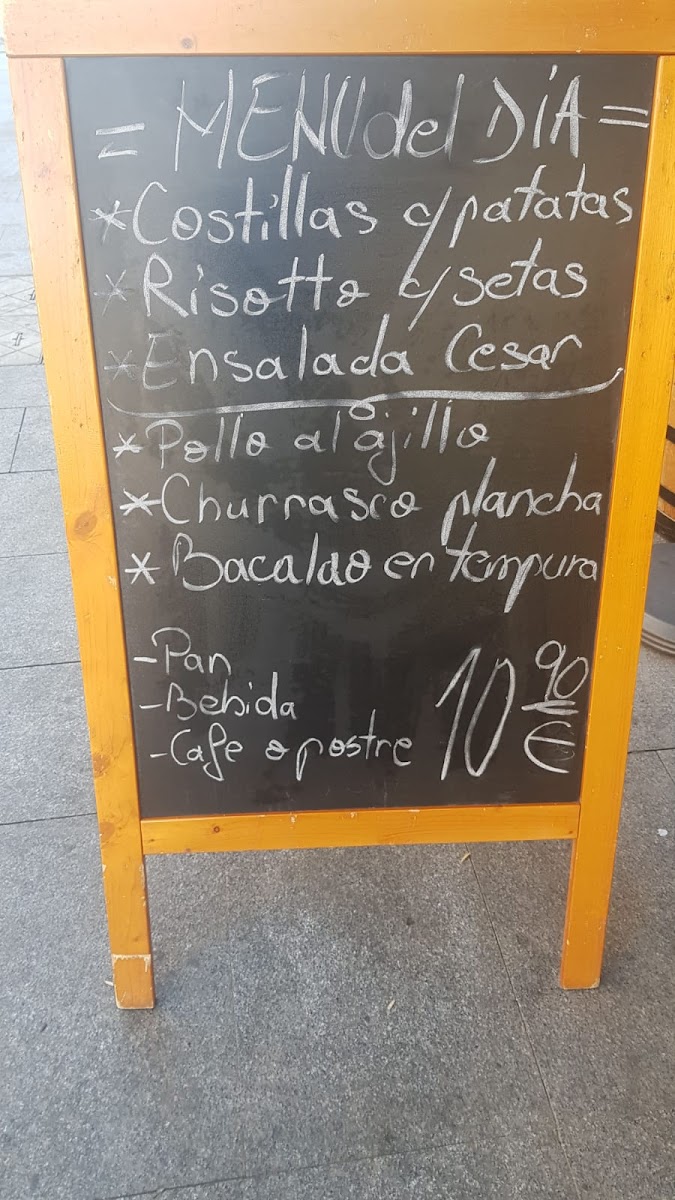 = MENU del DÍA =
* Costillas c/patatas
* Risotto c/setas
* Ensalada Cesar
* Pollo al ajillo
* Churrasco plancha
* Bacalao en tempura
- Pan
- Bebida
- Cafe o postre
10 90 €